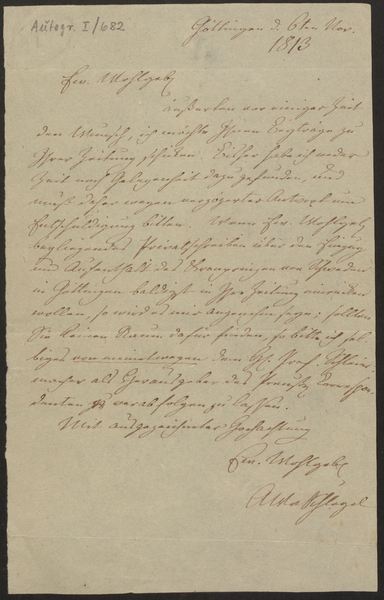 Autogr. I/682
Göttingen d. 6ten Nov.
1813
Ew. Wohlgeb.
äußerten vor einiger Zeit
den Wunsch, ich möchte Ihnen Beyträge zu
Ihrer Zeitung schicken. Bisher habe ich weder
Zeit noch Gelegenheit dazu gefunden, und
muß daher wegen verzögerter Antwort um
Entschuldigung bitten. Wenn Ew. Wohlgeb.
beyliegendes Privatschreiben über den Einzug
und Aufenthalt des Kronprinzen von Schweden
in Göttingen baldigst in Ihre Zeitung einrücken
wollen, so wird es mir angenehm seyn; sollten
Sie keinen Raum dafür finden, so bitte ich sol-
biges von meinetwegen dem H. Prof. Schleier-
macher als Herausgeber des Preuß. Correspon-
denten verabfolgen zu lassen.
Mit ausgezeichneter Hochachtung
Ew. Wohlgeb.
AWvSchlegel